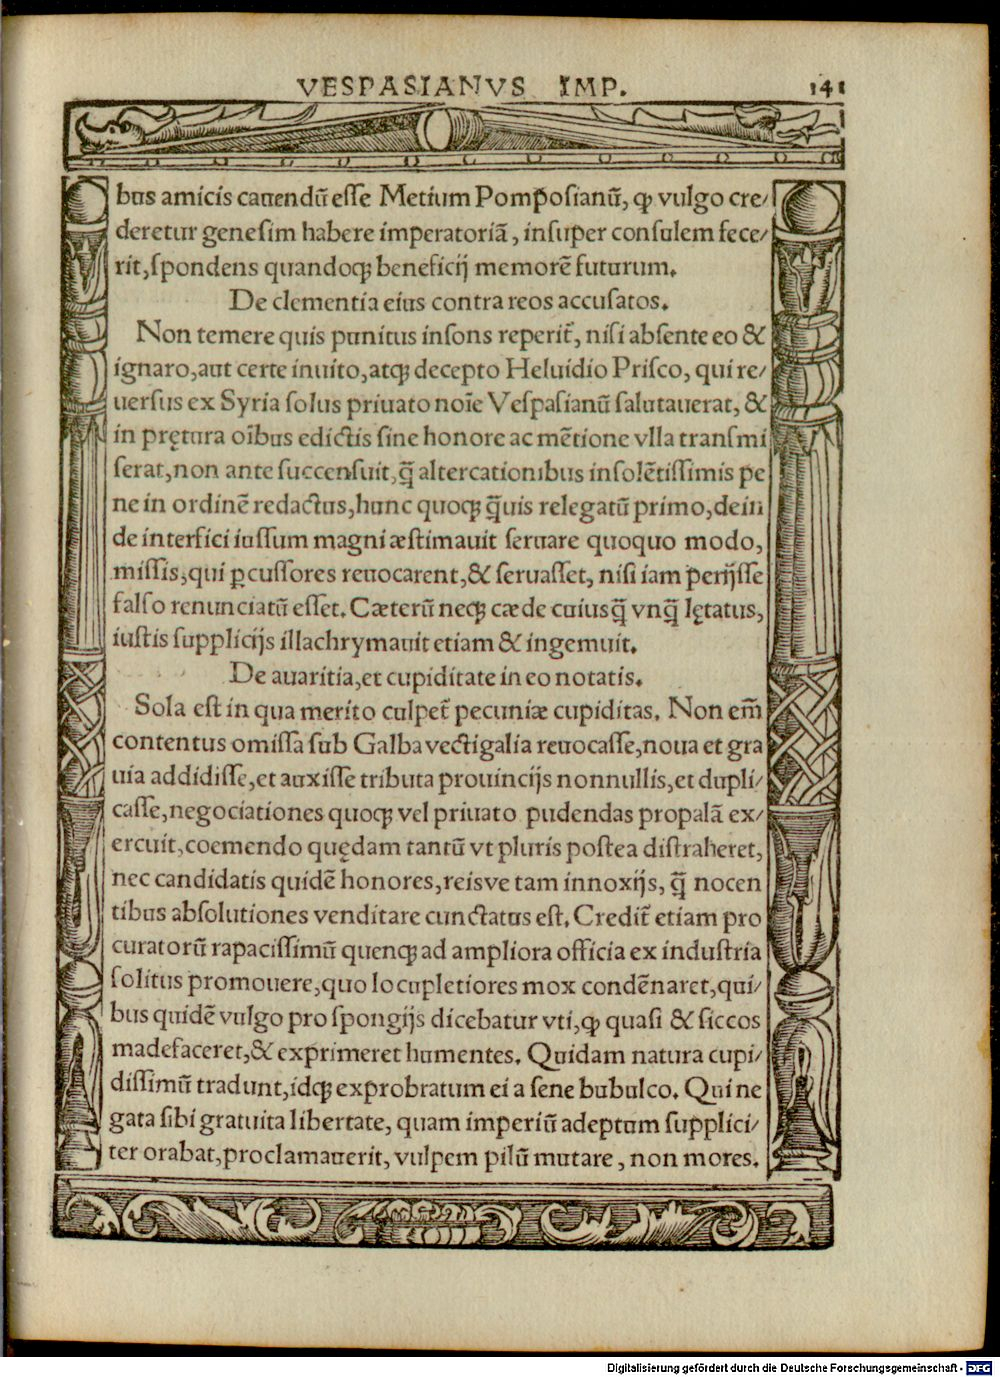 VESPASIANVS IMP. 141
bus amicis cauendũ esse Metium Pomposianũ, ꝙ vulgo cre/
deretur genesim habere imperatoriã, insuper consulem fece/
rit, spondens quandoqꝫ beneficij memorẽ futurum.
De clementia eius contra reos accusatos.
Non temere quis punitus insons reperit̃, nisi absente eo &
ignaro, aut certe inuito, atqꝫ decepto Heluidio Prisco, qui re/
uersus ex Syria solus priuato noĩe Vespasianũ salutauerat, &
in prętura oĩbus edictis sine honore ac mẽtione vlla transmi
serat, non ante succensuit, q̃ altercationibus insolẽtissimis pe
ne in ordinẽ redactus, hunc quoqꝫ q̃uis relegatũ primo, dein
de interfici iussum magni æstimauit seruare quoquo modo,
missis, qui ꝑcussores reuocarent, & seruasset, nisi iam perijsse
falso renunciatũ esset. Cæterũ neqꝫ cæde cuiusq̃ vnq̃ lętatus,
iustis supplicijs illachrymauit etiam & ingemuit.
De auaritia, et cupiditate in eo notatis.
Sola est in qua merito culpet̃ pecuniæ cupiditas. Non em̃
contentus omissa sub Galba vectigalia reuocasse, noua et gra
uia addidisse, et auxisse tributa prouincijs nonnullis, et dupli/
casse, negociationes quoqꝫ vel priuato pudendas propalã ex/
ercuit, coemendo quędam tantũ vt pluris postea distraheret,
nec candidatis quidẽ honores, reisve tam innoxijs, q̃ nocen
tibus absolutiones venditare cunctatus est. Credit̃ etiam pro
curatorũ rapacissimũ quenqꝫ ad ampliora officia ex industria
solitus promouere, quo locupletiores mox condẽnaret, qui/
bus quidẽ vulgo pro spongijs dicebatur vti, ꝙ quasi & siccos
madefaceret, & exprimeret humentes. Quidam natura cupi/
dissimũ tradunt, idqꝫ exprobratum ei a sene bubulco. Qui ne
gata sibi gratuita libertate, quam imperiũ adeptum supplici/
ter orabat, proclamauerit, vulpem pilũ mutare, non mores.
Digitalisierung gefördert durch die Deutsche Forschungsgemeinschaft - DFG